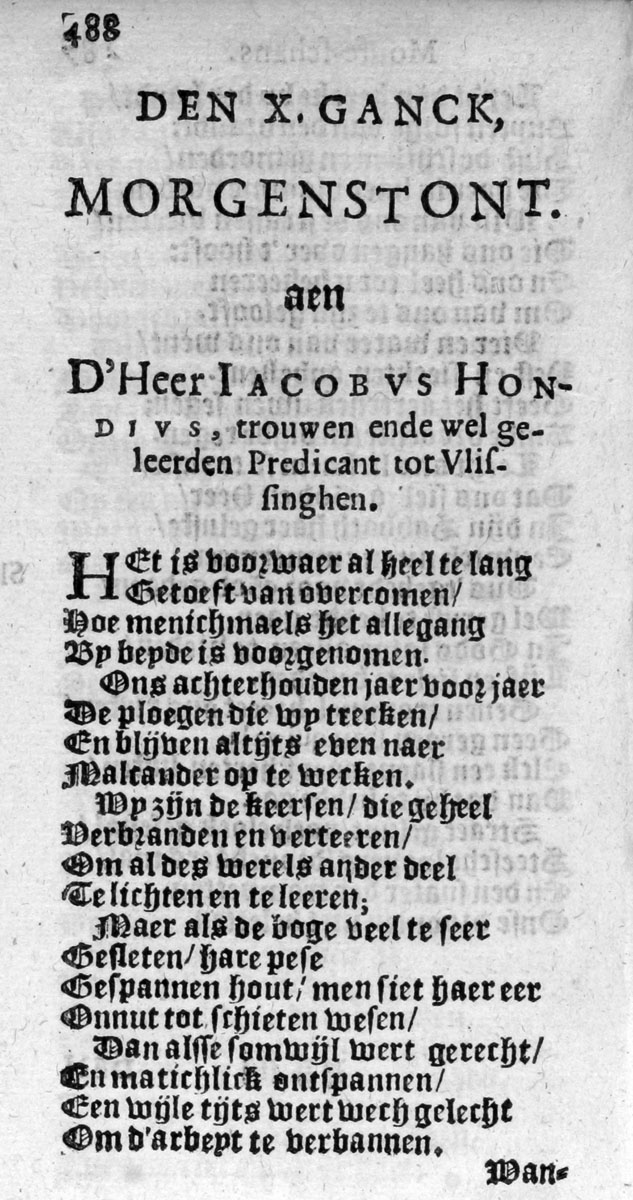 488
DEN X. GANCK,
MORGENSTONT.
aen
D'Heer IACOBVS HON-
DIVS, trouwen ende wel ge-
leerden Predicant tot Vlis-
singhen.
HEt is voorwaer al heel te lang
Getoeft van overcomen/
Hoe menichmaels het allegang
By beyde is voorgenomen.
Ons achterhouden jaer voor jaer
De ploegen die wy trecken/
En blijven altijts even naer
Malcander op te wecken.
Wy zijn de keersen/ die geheel
Verbranden en verteeren/
Om al des werels ander deel
Te lichten en te leeren;
Maer als de boge veel te seer
Gesleten/ hare pese
Gespannen hout/ men siet haer eer
Onnut tot schieten wesen/
Dan alsse somwijl wert gerecht/
En matichlick ontspannen/
Een wijle tijts wert wech gelecht
Om d'arbeyt te verbannen.
Wan-